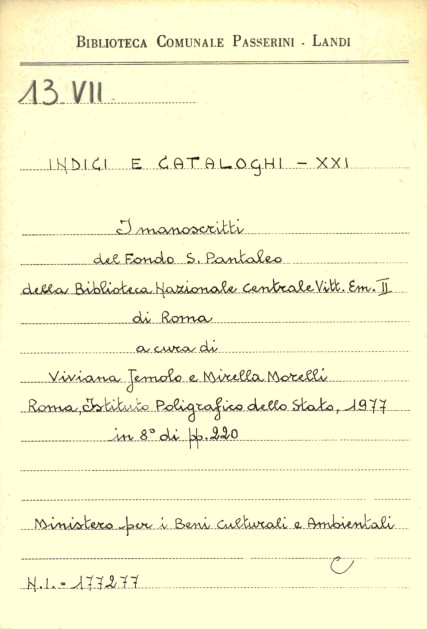 BIBLIOTECA COMUNALE PASSERINI - LANDI
13 VII
INDICI E CATALOGHI - XXI
I manoscritti
del Fondo S. Pantaleo
della Biblioteca Nazionale Centrale Vitt. Em. II
di Roma
a cura di
Viviana Jemolo e Mirella Morelli
Roma, Istituto Poligrafico dello Stato, 1977
in 8° di pp. 220
Ministero per i Beni Culturali e Ambientali
C
N.I. = 177277